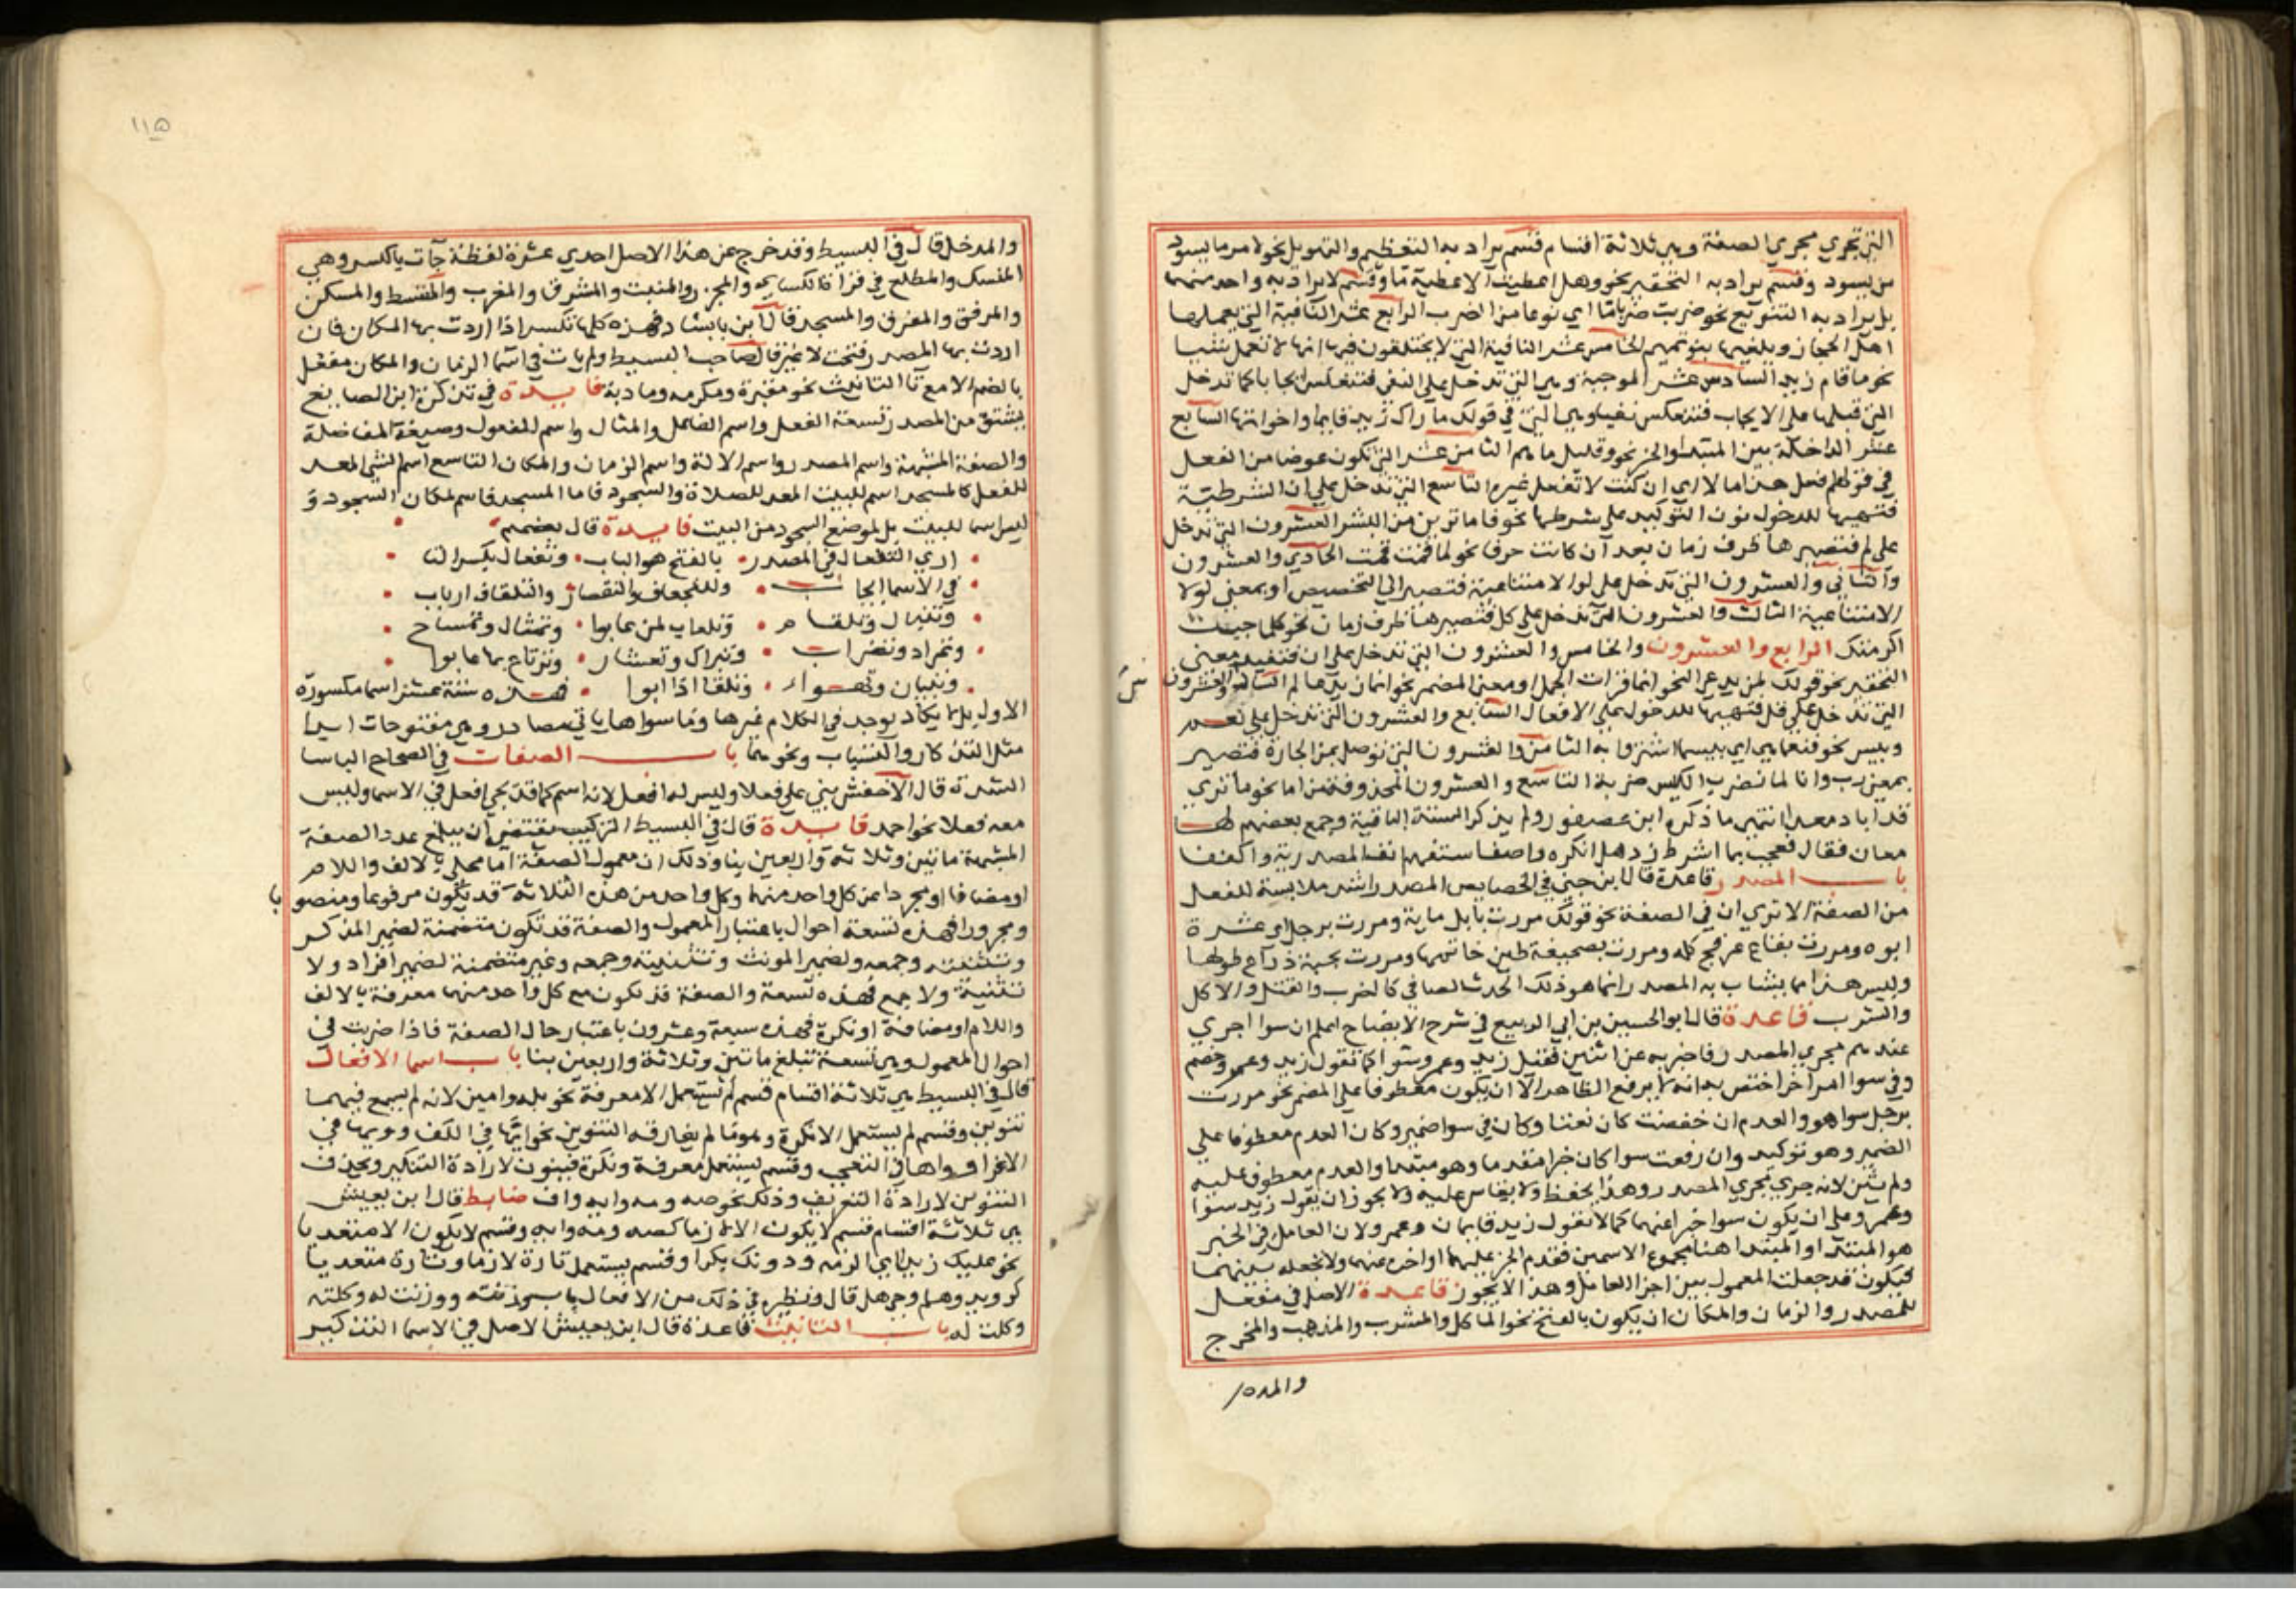 التي تجري مجري الصفة وهي ثلاثة اقسام قسم يراد به التعظيم والتهويل نحو لامر ما يسود
من يسود وقسم يراد به التحقير نحو وهل اعطيت الا عطية ما وقسم لا يراد به واحد منهما
بل يراد به التنويع نحو ضربت ضربا ما اي نوعا من الضرب الرابع عشر الكافية التي يعملها
اهل الحجاز ويلغيها بنو تميم الخامس عشر النافية التي لا يختلفون فيها انها لا تعمل شيا
نحو ما قام زيد السادس عشر الموجبة وهي التي تدخل على النفي فتنعكس ايجابا كما تدخل
التي قبلها على الايجاب فتنعكس نفيا وهي التي في قولك ما زال زيد قايما واخواتها السابع
عشر الداخلة بين المبتدا والخبر نحو وقليل ما هم الثامن عشر التي تكون عوضا من الفعل
في قولهم فعل هذا اما لا اي ان كنت لا تفعل غيره التاسع التي تدخل على ان الشرطية
فتهيها للدخول نون التوكيد على شرطها نحو فاما ترين من البشر العشرون التي تدخل
على لم فتصيرها ظرف زمان بعد ان كانت حرفا نحو لما قمت قمت الحادي والعشرون
والثاني والعشرون التي تدخل على لو الامتناعية فتصير الي التخصيص او بمعني لولا
الامتناعية الثالث والعشرون التي تدخل على كل فتصيرها ظرف زمان نحو كلما جيت
اكرمتك الرابع والعشرون والخامس والعشرون التي تدخل على ان فتفيد معني
التحقير نحو قولك لمن يدعي النحو انما قرات الجمل ومعني الحصر نحو انما زيد عالم السادس والعشرون
التي تدخل على قل فتهيها للدخول على الافعال السابع والعشرون التي تدخل على نعم
وبيس نحو فنعما هي اي بيسما اشتروا به الثامن والعشرون التي توصل بمن الجارة فتصير
بمعني رب وانا لمما نضرب الكبش ضربة التاسع والعشرون المحذوفة من اما نحو ما تري
قد اباد معدا انتهي ما ذكره ابن عصفور ولم يذكر الستة الباقية وجمع بعضهم لها
معان فقال تعجب بما اشرط زد صل انكره واصفا ستفهم نف المصدرية واكففا
باب المصدر قاعدة قال ابن جني في الخصايص المصدر اشد ملابسة للفعل
من الصفة الا تري ان في الصفة نحو قولك مررت بابل ماية ومررت برجل ابي عشرة
ابوه ومررت بقاع عرفج كله ومررت بصحيفة طين خاتمها ومررت بحية ذراع طولها
وليس هذا مما يشاب به المصدر انما هو ذلك الحدث الصافي كالضرب والقتل والاكل
والشرب قاعدة قال ابو الحسين بن ابي الربيع في شرح الايضاح اعلم ان سوا اجري
عندهم مجري المصدر فاخبر به عن اثنين فقيل زيد وعمرو سوا كما تقول زيد وعمرو خصم
وفي سوا امر اخر اختص به انه لا يرفع الظاهر الا ان يكون معطوفا على المضمر نحو مررت
برجل سوا هو والعدم ان خفضت كان نعتا وكان في سوا ضمير وكان العدم معطوفا على
الضمير وهو توكيد وان رفعت سوا كان خبرا مقدما وهو مبتدا والعدم معطوف عليه
ولم يثن لانه جري مجري المصدر وهذا يحفظ ولا يقاس عليه ولا يجوز ان يقول زيد سوا
وعمرو على ان يكون سوا خبرا عنهما كما لا تقول زيد قايمان وعمرو ولان العامل في الخبر
هو المبتدا والمبتدا هنا مجموع الاسمين فقدم الخبر عليهما او اخره عنهما ولا تجعله بينهما
فيكون قد جعلت المعمول بين اجزا العامل وهذا لا يجوز قاعدة الاصل في مفعل
للمصدر والزمان والمكان ان يكون بالفتح نحو الماكل والمشرب والمذهب والمخرج
١١٥
والمدخل قال في البسيط وقد خرج عن هذا الاصل احدي عشرة لفظة جات بالكسر وهي
المنسك والمطلع في قراة الكسايي والمجزر والمنبت والمشرق والمغرب والمقسط والمسكن
والمرفق والمفرق والمسجد قال ابن بابشاد فهذه كلها تكسر اذا اردت بها المكان فان
اردت بها المصدر فتحت لا غير قال صاحب البسيط ولم يات في اسما الزمان والمكان مفعل
بالضم الا مع تا التانيث نحو مقبرة ومكرمه ومادبة فايدة في تذكرة ابن الصايغ
يشتق من المصدر تسعة الفعل واسم الفاعل والمثال واسم المفعول وصيغة المفاضلة
والصفة المشبهة واسم المصدر واسم الالة واسم الزمان والمكان التاسع اسم الشي المعد
للفعل كالمسجد اسم للبيت المعد للصلاة والسجود فاما المسجد فاسم لمكان السجود و
ليس اسما للبيت بل لموضع السجود من البيت فايدة قال بعضهم
اري التفعال في المصدر بالفتح هو الباب وتفعال بكسر التا
في الاسما ايجاب وللتجفاف والتقصار والتلقاف ارباب
وتنبال وتلقام وتلعاب لمن عابوا وتمثال وتمساح
وتمراد وتضراب وتبراك وتعشار وترتاع بما عابوا
وتبيان وتهواء وتلقا اذا ابوا فهذه ستة عشر اسما مكسورة
الاول بل لا يكاد يوجد في الكلام غيرها وما سواها ياتي مصادر وهي مفتوحات ابدا
مثل التذكار والتسياب ونحوهما باب الصفات في الصحاح الباسا
الشدة قال الاخفش بني على فعلا وليس له افعل لانه اسم كما قد يجي افعل في الاسما وليس
معه فعلا نحو احمد فايدة قال في البسيط التركيب يقتضي ان يبلغ عدد الصفة
المشبهة ماتين وثلاثة واربعين بنا وذلك ان معمول الصفة اما محلي بالالف واللام
او مضافا او مجردا عن كل واحد منهما وكل واحد من هذه الثلاثة قد يكون مرفوعا ومنصوبا
ومجرورا فهذه تسعة احوال باعتبار المعمول والصفة قد تكون متضمنة لضمير المذكر
وتثنيته وجمعه ولضمير المونث وتثنيته وجمعه وغير متضمنة لضمير افراد ولا
تثنية ولا جمع فهذه تسعة والصفة قد تكون مع كل واحد منهما معرفة بالالف
واللام او مضافة او نكرة فهذه سبعة وعشرون باعتبار حال الصفة فاذا ضربت في
احوال المعمول وهي تسعة تبلغ ماتين وثلاثة واربعين بنا باب اسما الافعال
قال في البسيط هي ثلاثة اقسام قسم لم يستعمل الا معرفة نحو بله وامين لانه لم يسمع فيهما
تنوين وقسم لم يستعمل الا نكرة وهو ما لم يفارقه التنوين نحو ايها في الكف وويها في
الاغرا وواها في التعجب وقسم يستعمل معرفة ونكرة فينون لارادة التنكير ويحذف
التنوين لارادة التعريف وذلك نحو صه ومه وايه واف ضابط قال ابن يعيش
هي ثلاثة اقسام قسم لا يكون الا لازما كصه ومه وايه وقسم لا يكون الا متعديا
نحو عليك زيدا اي الزمه ودونك بكرا وقسم يستعمل تارة لازما وتارة متعديا
كرويد وهلم وحيهل قال ونظيره في ذلك من الافعال باب وزنته ووزنت له وكلته
وكلت له باب التانيث قاعدة قال ابن يعيش الاصل في الاسما التذكير